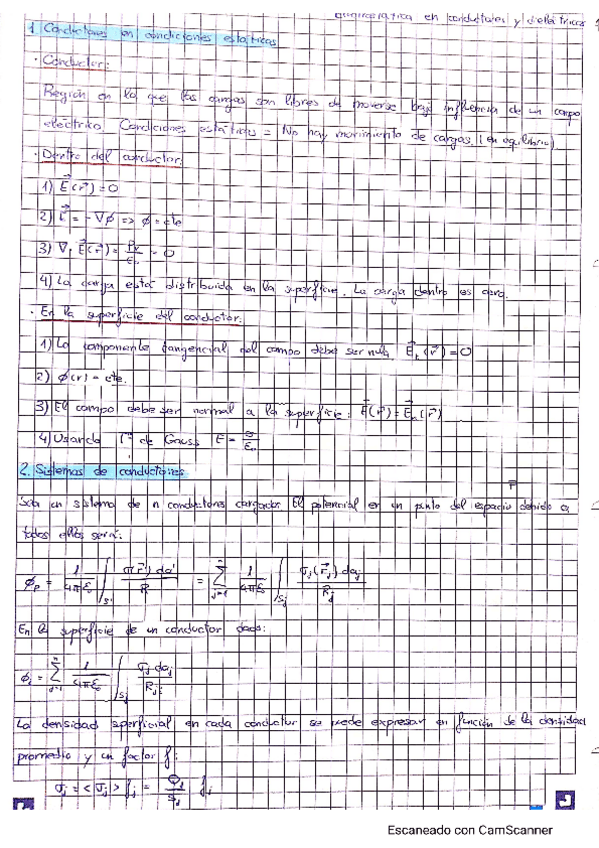 en conductores y dieléctricos
1. Conductores en condiciones estáticas
· Conductor:
Región en la que las cargas son libres de moverse bajo influencia de un campo
eléctrico. Condiciones estáticas = No hay movimiento de cargas. (en equilibrio)
· Dentro del conductor:
1) E⃗(r⃗)=0
2) E⃗ = -∇φ => φ = cte
3) ∇·E⃗(r⃗) = ρv/ε₀ = 0
4) La carga está distribuida en la superficie. La carga dentro es cero.
· En la superficie del conductor:
1) La componente tangencial del campo debe ser nula. E⃗t(r⃗)=0
2) φ(r) = cte.
3) El campo debe ser normal a la superficie: E⃗(r⃗)=E⃗n(r⃗)
4) Usando Tª de Gauss E = σ/ε₀
2. Sistemas de conductores
P
Sea un sistema de n conductores cargados. El potencial en un punto del espacio debido a
todos ellos será:
φp = 1/4πε₀ ∫s' σ(r⃗') da'/R = Σ j=1 n 1/4πε₀ ∫sj σj(r⃗j) daj/Rj
En la superficie de un conductor dado:
φi = Σ j=1 n 1/4πε₀ ∫sj σj daj/Rji
La densidad superficial en cada conductor se puede expresar en función de la densidad
promedio y un factor f:
σj = <σj> fj = Qj/Sj fj
Escaneado con CamScanner